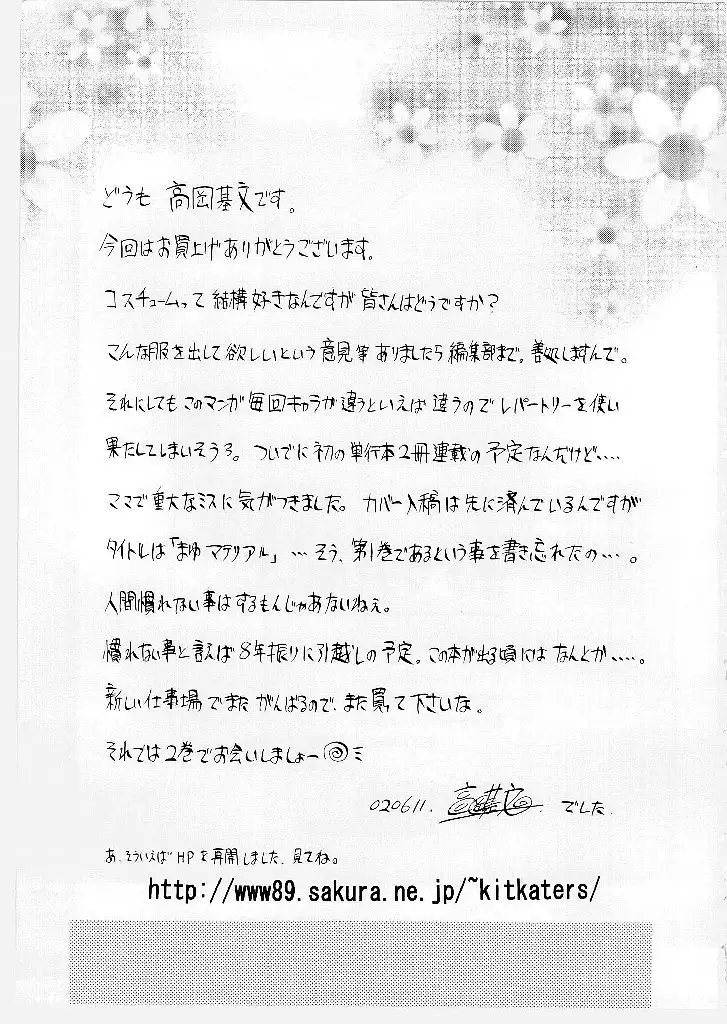 どうも 高岡基文です。
今回はお買上げありがとうございます。
コスチュームって結構好きなんですが皆さんはどうですか?
こんな服を出して欲しいという意見等ありましたら編集部まで。善処しますんで。
それにしてもこのマンガ毎回キャラが違うといえば違うのでレパートリーを使い
果たしてしまいそうろ。ついでに初の単行本2冊連載の予定なんだけど....
ママで重大なミスに気がつきました。カバー入稿は先に済んでいるんですが
タイトルは「まゆマテリアル」…そう、第1巻であるという事を書き忘れたの…。
人間慣れない事はするもんじゃあないねえ。
慣れない事と言えば8年振りに引越しの予定。この本が出る頃にはなんとか....。
新しい仕事場でまたがんばるので、また買って下さいな。
それでは2巻でお会いしましょー
020611. 高岡基文 でした.
あ、そういえばHPを再開しました、見てね。
http://www89.sakura.ne.jp/~kitkaters/